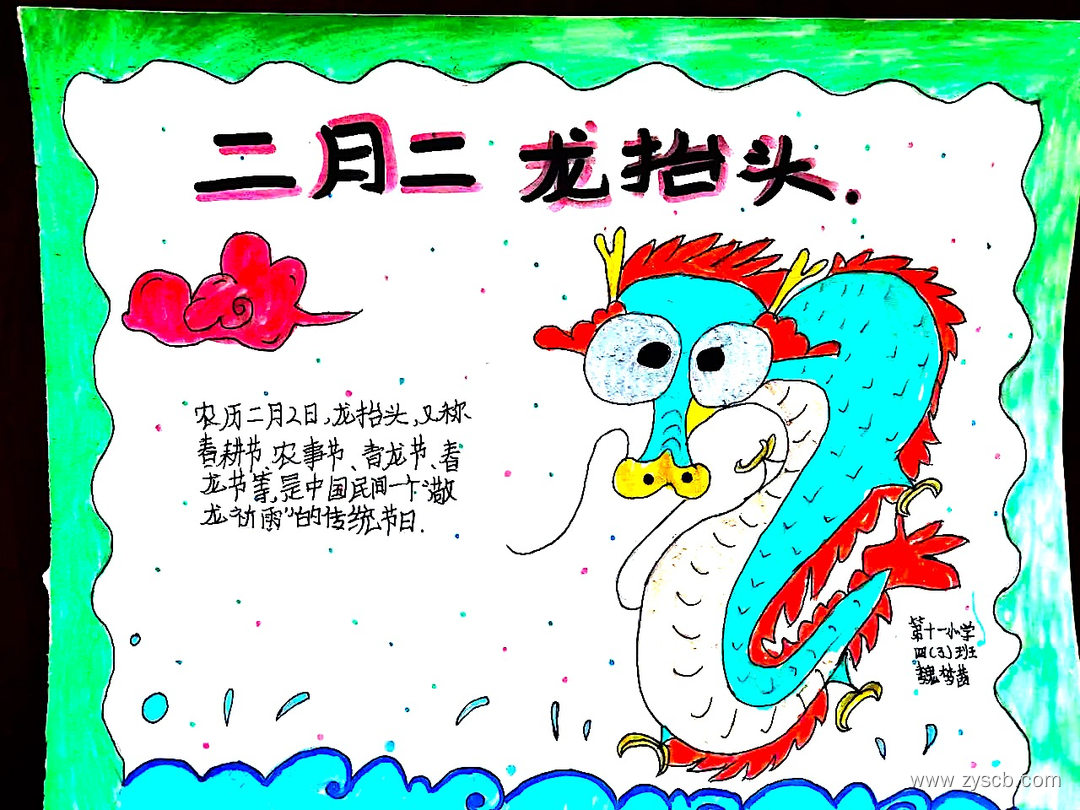 二月二 龙抬头.
农历二月2日,龙抬头,又称
春耕节、农事节、青龙节、春
龙节等,是中国民间一个"敬
龙祈雨"的传统节日.
第十一小学
四(3)班
魏梦茜
www.zyscb.com